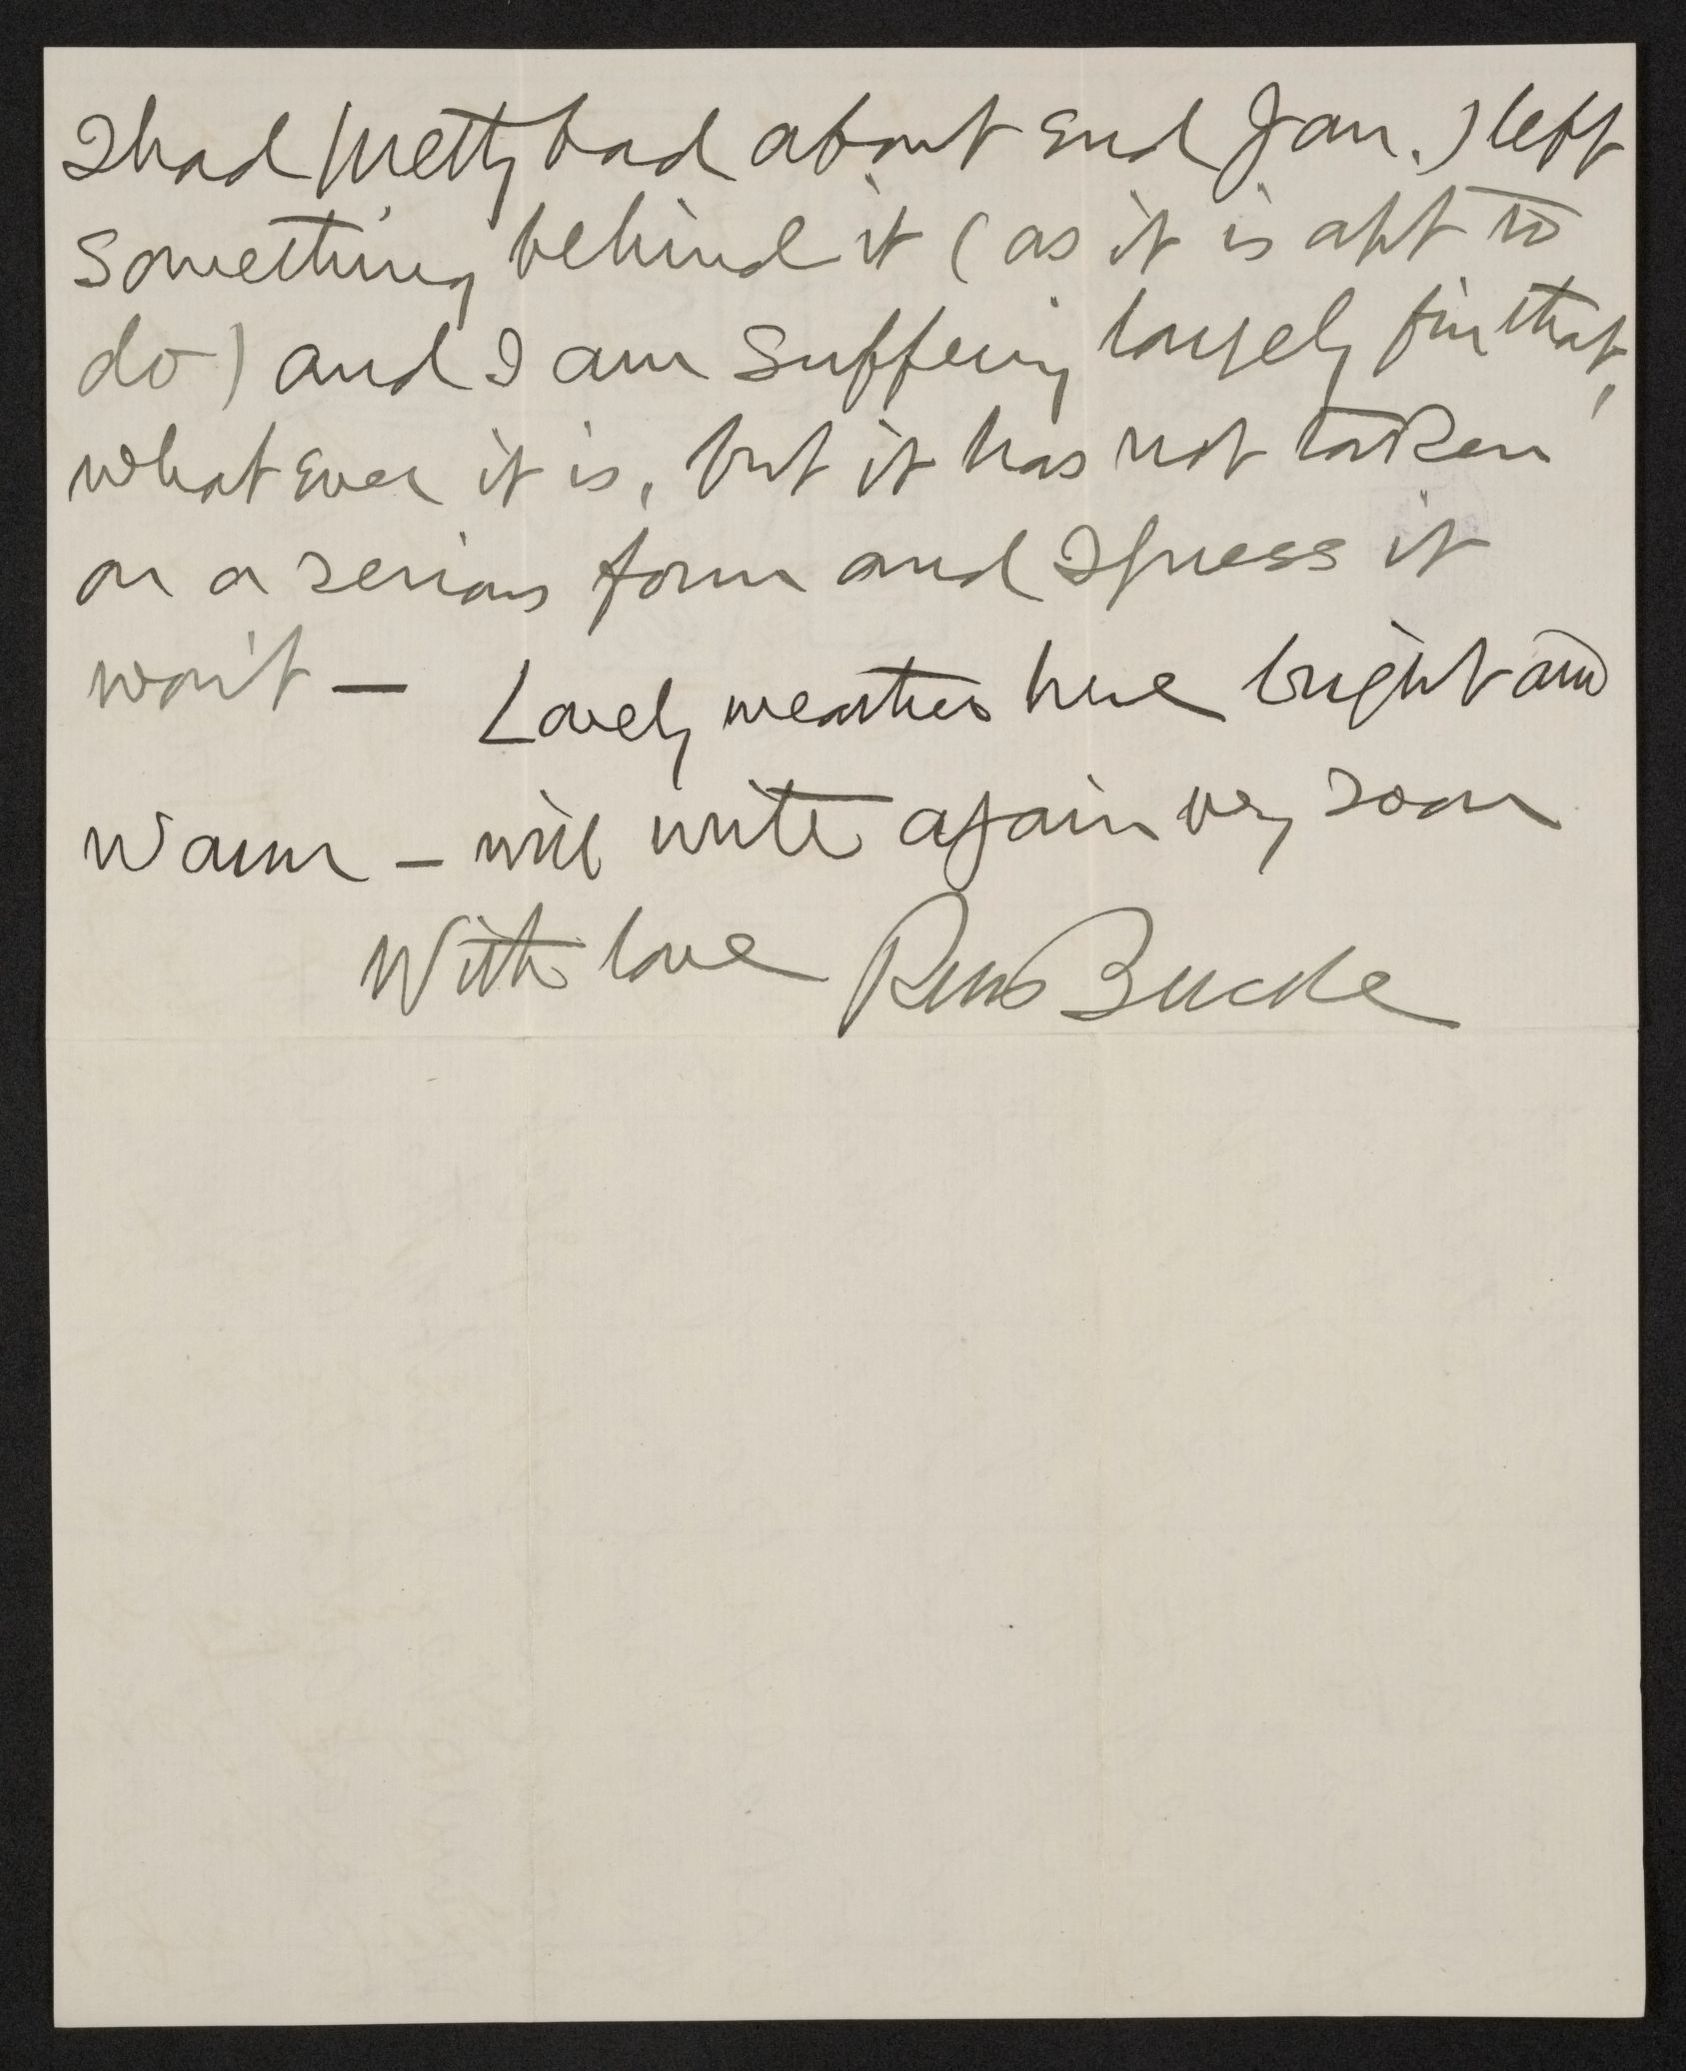 I had pretty bad about end Jan.) left
something behind it (as it is apt to
do) and I am suffering largely fm that,
what ever it is, but it has not taken
on a serious form and I guess it
won't — Lovely weather here bright and
warm — will write again very soon
With love RM Bucke